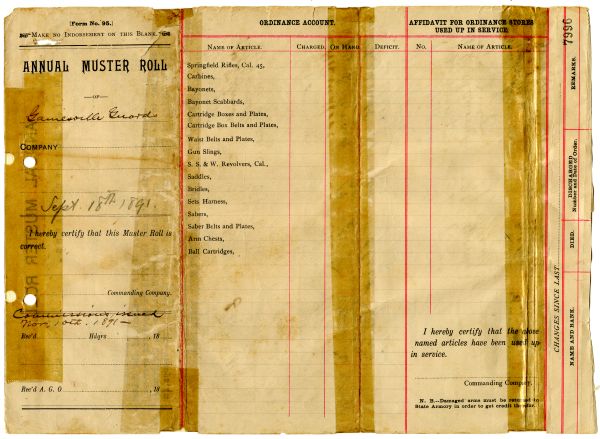 [Form No. 95.]
MAKE NO INDORSEMENT ON THIS BLANK.
ANNUAL MUSTER ROLL
—OF—
Gainesville Guards
COMPANY
Sept. 18th 1891.
I hereby certify that this Muster Roll is
correct.
Commanding Company.
Commissions issued
Nov. 10th. 1891—
Rec'd Hdqrs ,18
Rec'd A. G. O ,18
ORDINANCE ACCOUNT.
NAME OF ARTICLE. CHARGED. ON HAND. DEFICIT.
Springfield Rifles, Cal. 45,
Carbines,
Bayonets,
Bayonet Scabbards,
Cartridge Boxes and Plates,
Cartridge Box Belts and Plates,
Waist Belts and Plates,
Gun Slings,
S. S. & W. Revolvers, Cal.,
Saddles,
Bridles,
Sets Harness,
Sabers,
Saber Belts and Plates,
Arm Chests,
Ball Cartridges,
AFFIDAVIT FOR ORDINANCE STORES
USED UP IN SERVICE.
NO. NAME OF ARTICLE.
I hereby certify that the above
named articles have been used up
in service.
Commanding Company.
N. B.—Damaged arms must be returned to
State Armory in order to get credit therefor.
7996
CHANGES SINCE LAST
REMARKS.
DISCHARGED
Number and Date of Order.
DIED.
NAME AND RANK.